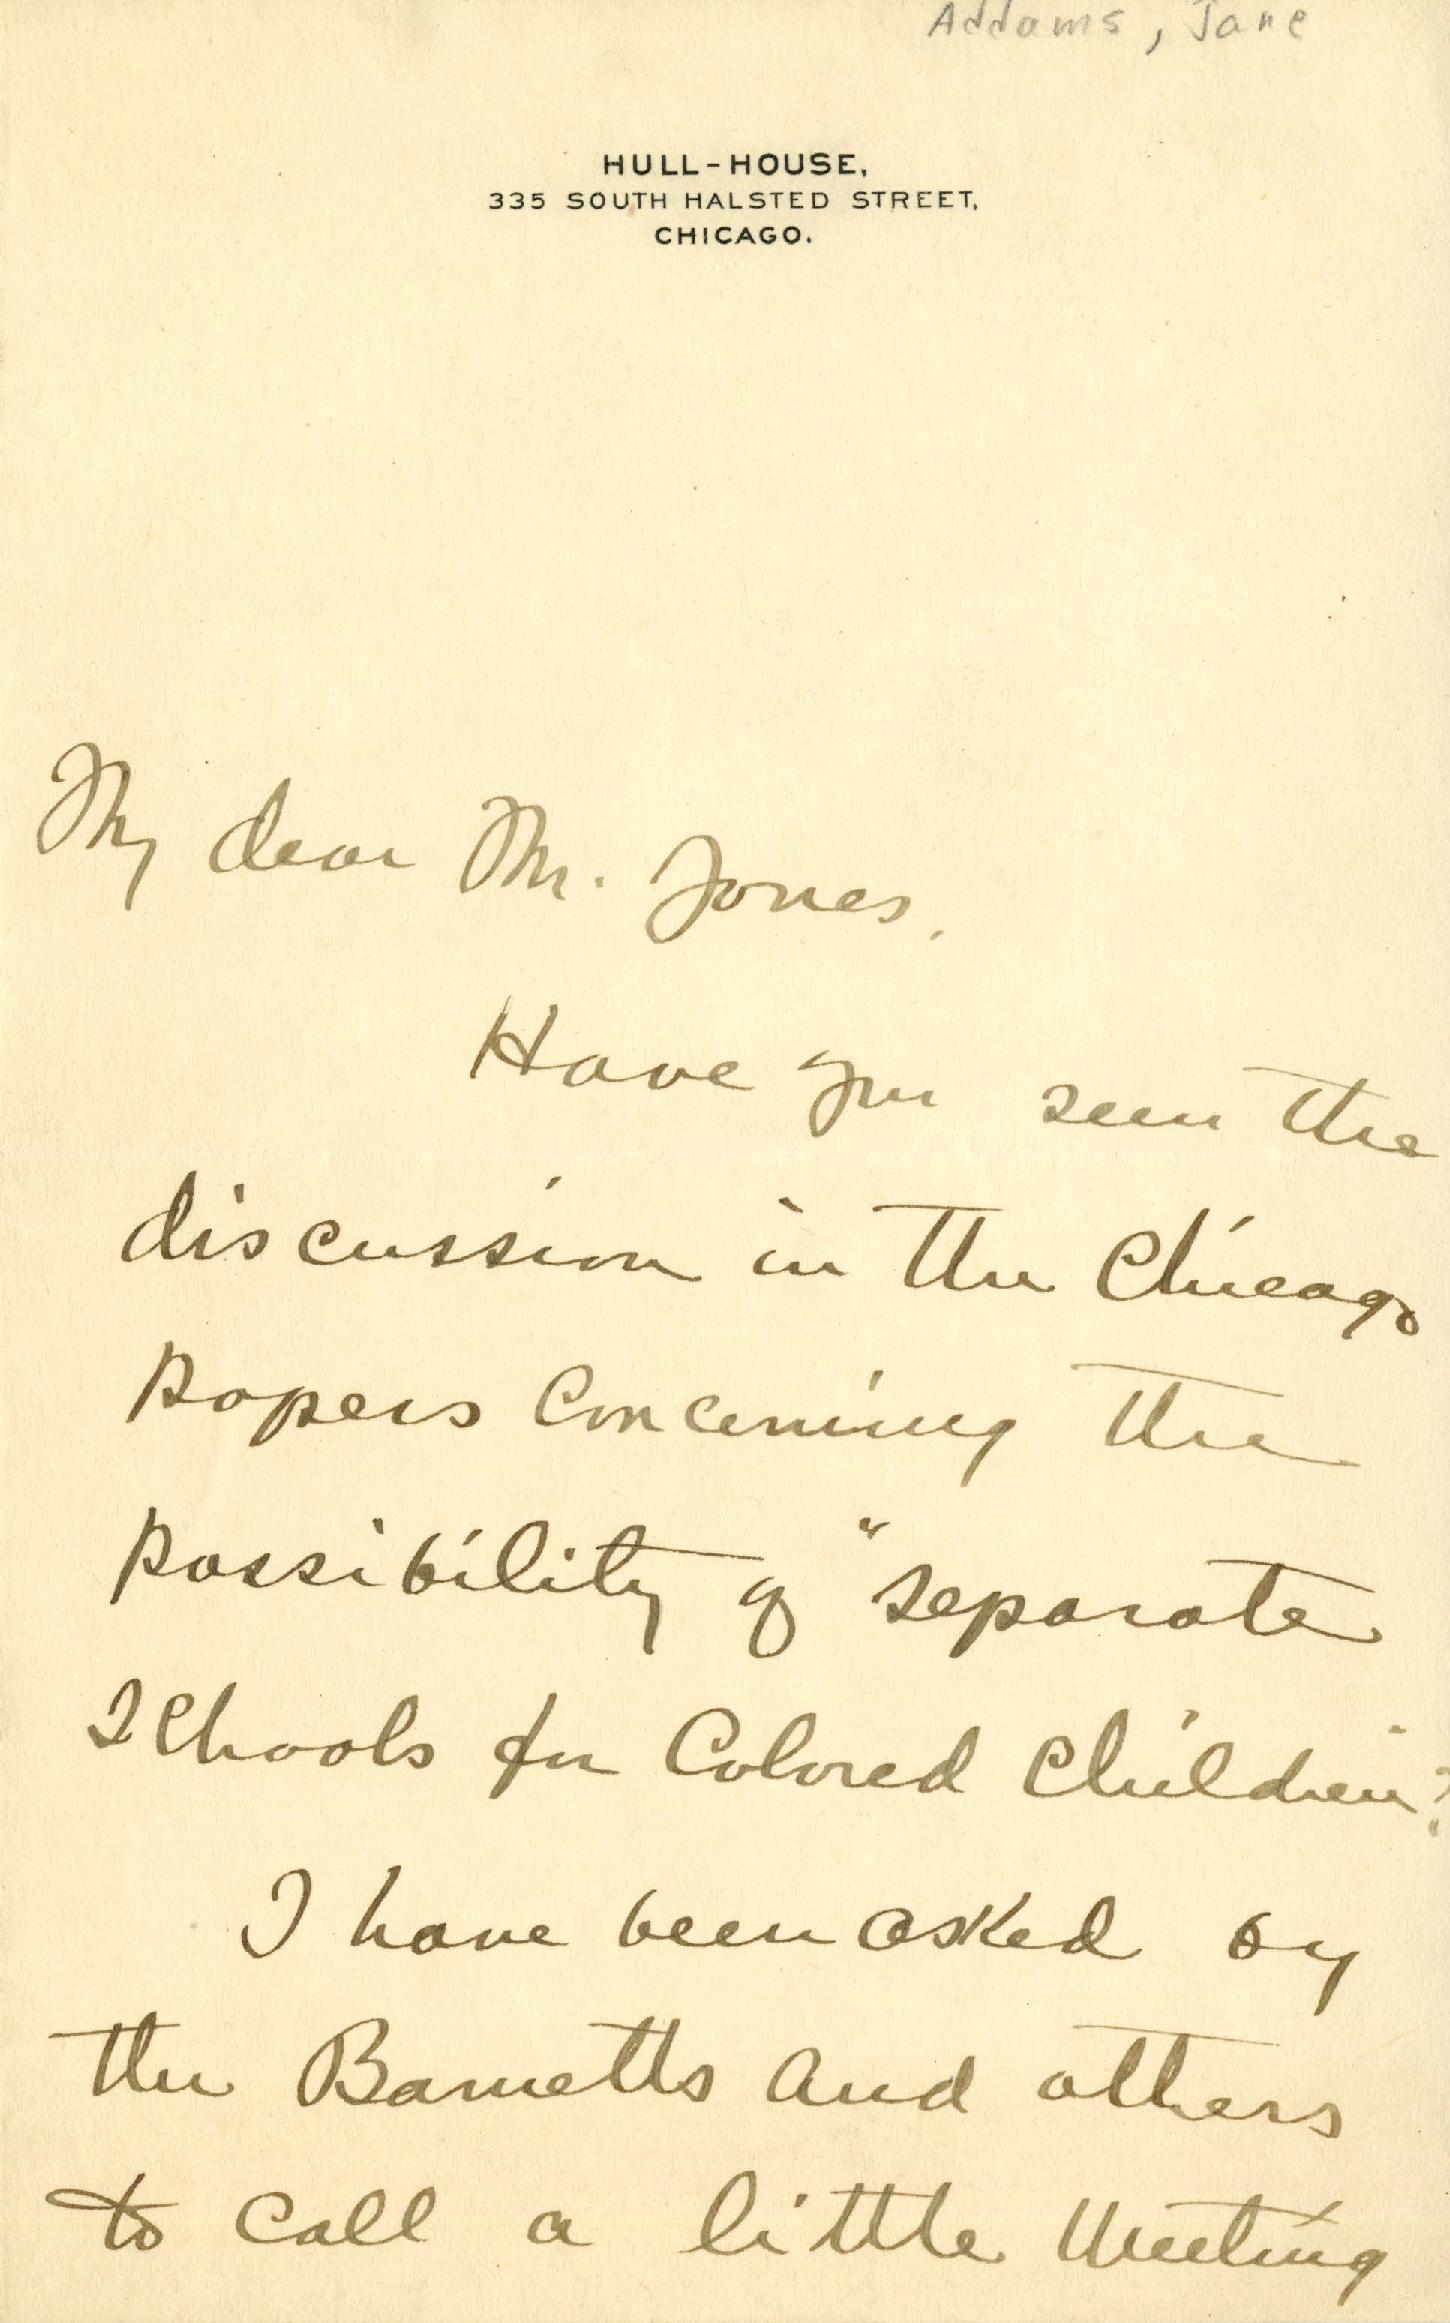 Addams, Jane
HULL-HOUSE,
335 SOUTH HALSTED STREET,
CHICAGO.
My dear Mr. Jones.
Have you seen the
discussion in the Chicago
papers concerning the
possibility of "separate
schools for Colored Children?
I have been asked by
the Barnetts and others
to call a little meeting